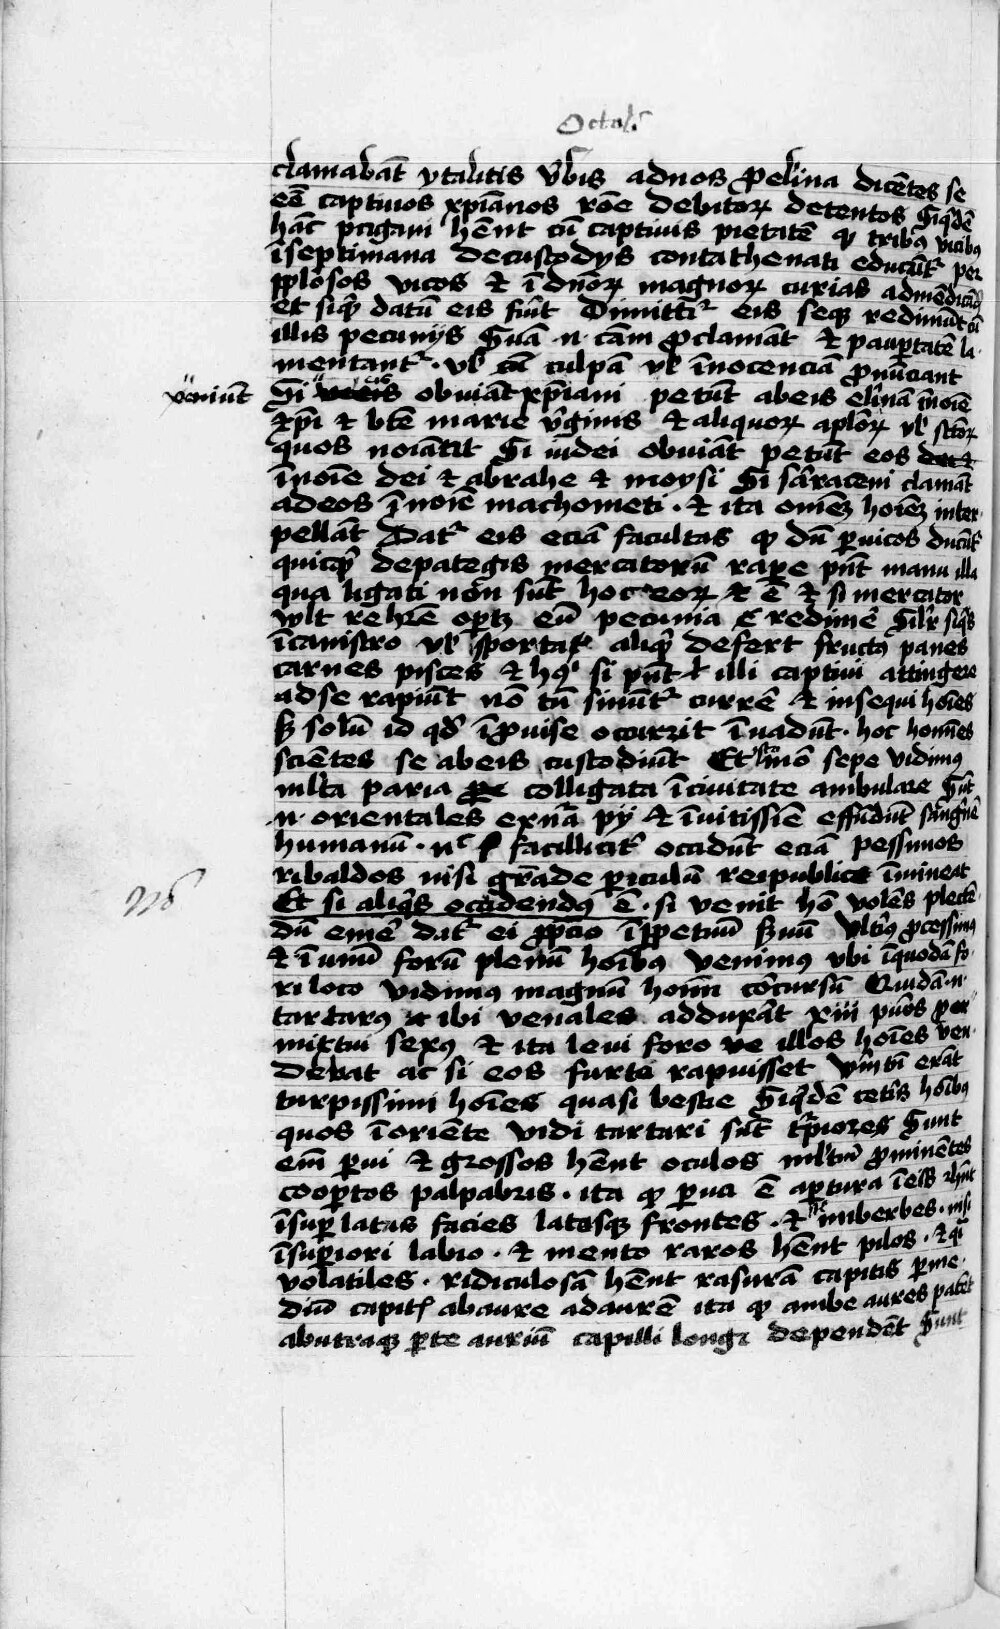 Octob̄
clamabāt ytalitis v̄bis ad nos ꝓ elīna dicētes se
eē captiuos xp̄ianos rōe debitoꝝ detentos Siq̄dē
hāc pagani hēnt cū captiuis pietatē qꝫ tribꝰ vicibꝰ
ī septimana de custodijs contathenati educūt᷑ per
ꝓplōsos vicos ⁊ ī dn̄oꝝ magnoꝝ curias ad mēdicādū
et siqͥd datū eis fu̅it Dimittit᷑ eis seqꝫ redimūt cū
illis pecunijs Suā .n. cām ꝓclamāt ⁊ paup̄tatē la-
mentant᷑ . vl̄ culpā vl̄ īnocenciā ꝓnūciant
veniūt
Si eis obuiāt xp̄iani petūt ab eis elīnā ī noīe
xp̄i ⁊ btē marie v̄ginis ⁊ aliquoꝝ apl̄oꝝ vl̄ sctōꝝ
quos noīāt Si iudei obuiāt petūt eos
ī noīe dei ⁊ abrahe ⁊ moysi Si sarraceni clamāt
ad eos ī noīe machometi . ⁊ ita omēꝫ hoīeꝫ inter-
pellāt Dat᷑ eis eciā facultas qꝫ dū ꝑ vicos ducūt᷑
quicqͥd de pategis mercatorū rape̅ pn̄t manu illa
qua ligati non sūt hoc eoꝝ ē ⁊ si mercator
vult rehr̄e oportꝫ eū pecunia redime̅ Silr̄ siqͥs
ī canistro vl̄ sporta aliqͥd defert fructꝰ panes
carnes pisces ⁊ hꝰ si pn̄t illi captiui attingere
ad se rapiūt nō tn̄ sinūt᷑ curre̅ ⁊ insequi hoīes
sꝫ solū id qd̄ ī ꝓuise occurrit īuadūt . hoc homīes
scientes se ab eis custodiūt Et isto mō sepe vidimꝰ
ml̄ta paria colligata ī ciuitate ambulare Sūt
.n. orientales ex nr̄a pij ⁊ īuitissīe effūdūt sāguinē
humanū . nͨ facillicit᷑ occidūt eciā pessimos
ribaldos nisi grāde ꝑiculū reipublice īmineat
226
Et si aliqͥs occidendꝰ ē . si venit hō volēs plecte̅-
dū eme̅ dat᷑ ei ꝓ p̄cio ī ꝑpetuū suū vltiꝰ ꝓcessimꝰ
⁊ ī vnū forū plenū hoībꝰ venimꝰ vbi ī quodā fo-
ri loco vidimꝰ magnū hoīm cōcursū Quidā .n.
tartarꝰ ibi venales adduxāt xiii pu̅os ꝓ-
mixtui sexꝰ ⁊ ita leui foro illos hoīes ven-
debat ac si eos furte rapuisset erāt
turpissimi hoīes quasi bestie Siq̄dē cet̄is hoībꝰ
quos ī oriēte vidi tartari sūt t̄piores Sunt
eīm ꝑui ⁊ grossos hēnt oculos ml̄tū ꝓminētes
coop̄tos palpabris . ita qꝫ ꝑua ē ap̄tura ī eis hn̄t
īsuꝑ latas facies latasqꝫ frontes . ⁊ imberbes . nisi
ī superiori labio . ⁊ mento raros hēnt pilos . ⁊ q̄si
volatiles . ridiculosā hēnt rasurā capitis ꝑ me-
diū capitꝭ ab aure ad aurē ita qꝫ ambe aures patēt
ab vtraqꝫ ꝑte auriū capilli longi dependēt Sunt